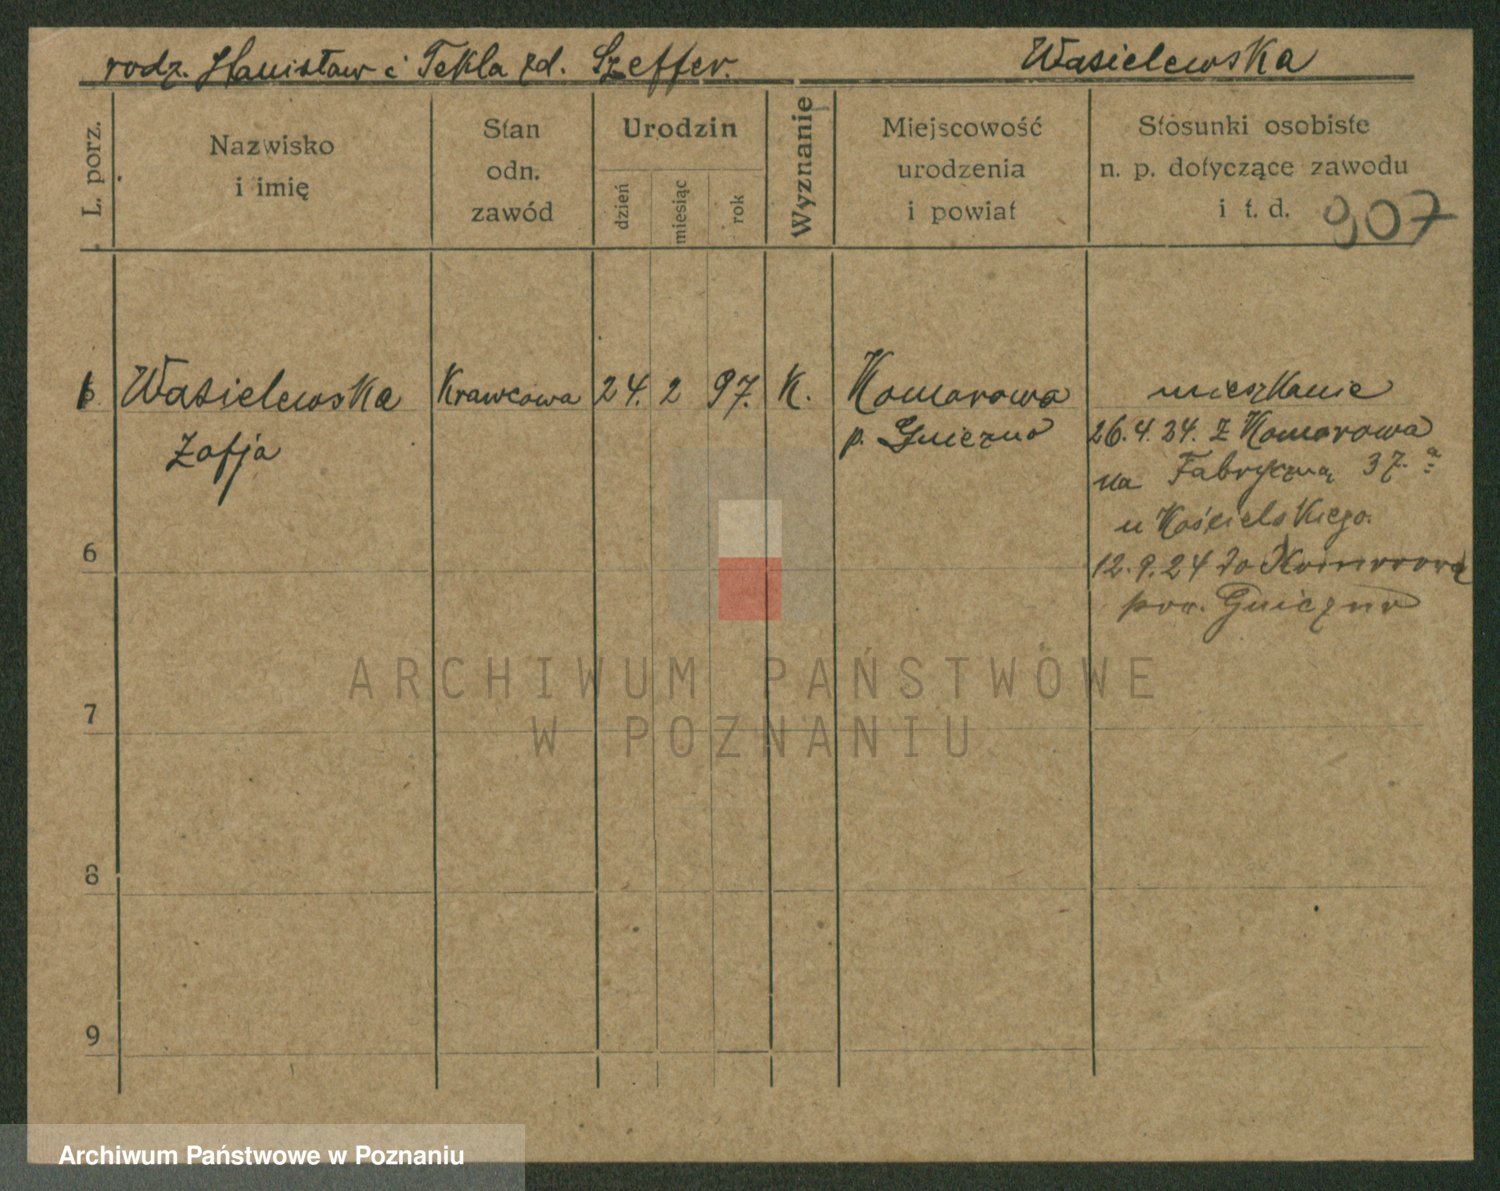 rodz. Stanisław i Tekla zd. Szeffer. Wasielewska
L. porz.
Nazwisko
i imię
Stan
odn.
zawód
Urodzin
dzień
miesiąc
rok
Wyznanie
Miejscowość
urodzenia
i powiat
Stosunki osobiste
n. p. dotyczące zawodu
i t. d.
907
Wasielewska Krawcowa 24. 2 97. K. Komorowo mieszkanie
Zofja p. Gniezno 26.4.24. z Komorowa
na Fabryczną 37.a
u Kościelskiego.
12.9.24 do Komorowa
pow. Gniezno
6
7
8
9
ARCHIWUM PAŃSTWOWE
W POZNANIU
Archiwum Państwowe w Poznaniu